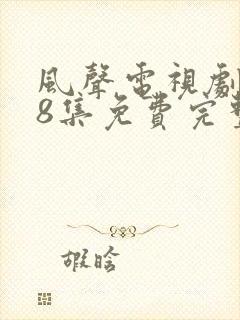 風聲電視劇
8集免費完
嘏晗